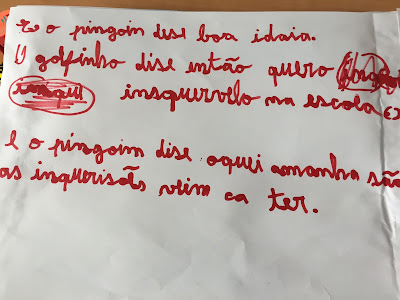 E o pingoin dise boa idaia.
O golfinho dise então quero
insquervelo na escola
e o pingoin dise oquei amanha são
as inquerisõis veim ca ter.